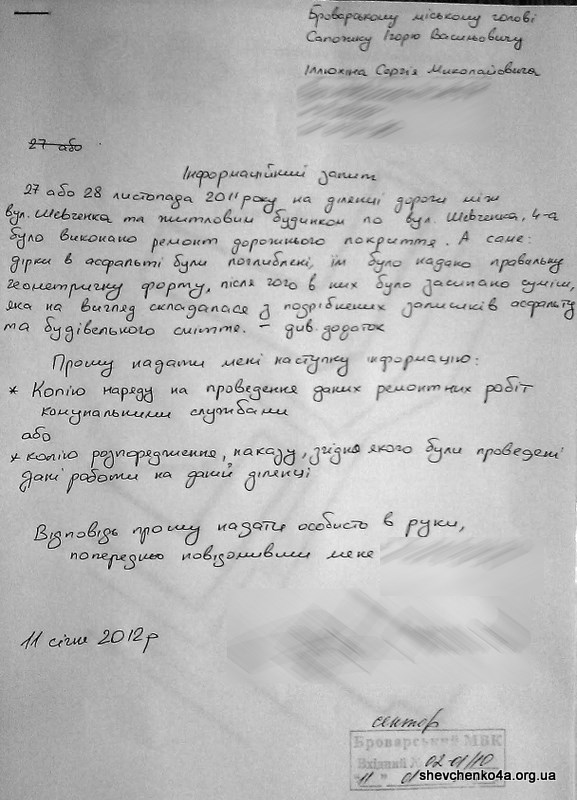 Броварському міському голові
Сапожку Ігорю Васильовичу
Іллюхіна Сергія Миколайовича
27 або
Інформаційний запит
27 або 28 листопада 2011 року на ділянці дороги між
вул. Шевченка та житловим будинком по вул. Шевченка, 4-а
було виконано ремонт дорожнього покриття. А саме:
дірки в асфальті були поглиблені, їм було надано правильну
геометричну форму, після чого в них було засипано суміш,
яка на вигляд складалася з подрібнених залишків асфальту
та будівельного сміття. – див. додаток
Прошу надати мені наступну інформацію:
* Копію наряду на проведення даних ремонтних робіт
комунальними службами
або
* копію розпорядження, наказу, згідно якого були проведені
дані роботи на даній ділянці
Відповідь прошу надати особисто в руки,
попередньо повідомивши мене
11 січня 2012р
сектор
Броварський МВК
Вхідний № 02-01/10
"11"
shevchenko4a.org.ua